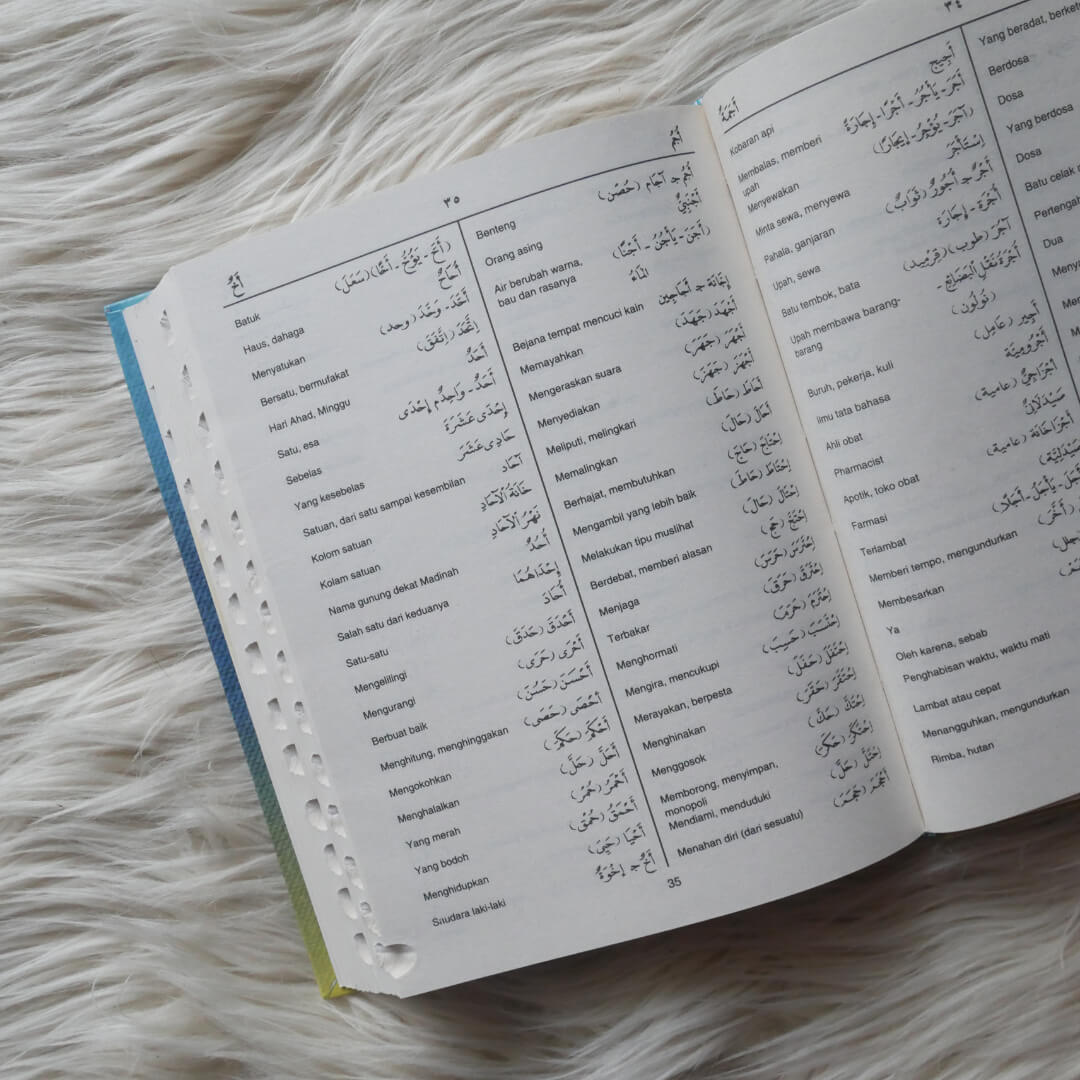 ٣٤
أَجَمَةٌ
Yang beradat,
Berdosa
Dosa
Yang berdosa
Dosa
Batu celak
Dua
Kobaran api أَجِيج
Membalas, memberi أَجَرَ - يَأْجُرُ - أَجْرًا - إِجَارَةً
upah
Menyewakan (آجَرَ - يُؤْجِرُ - إِيجَارًا)
Minta sewa, menyewa إِسْتَأْجَرَ
Pahala, ganjaran أَجْرٌ ج أُجُورٌ (ثَوَابٌ)
Upah, sewa أُجْرَة - إِجَارَة
Batu tembok, bata آجُر (طوب) (قرميد)
Upah membawa barang- أُجْرَةُ نَقْلِ الْبَضَائِع -
barang (نولون)
Buruh, pekerja, kuli أَجِير (عَامِل)
Ilmu tata bahasa أَجْرُومِيَّة
Ahli obat أَجْزَاجِيٌّ (عامية)
Pharmacist صَيْدَلَانِيٌّ
Apotik, toko obat أَجْزَاخَانَة (عامية)
Farmasi صَيْدَلِيَّة
Terlambat يَأْجَلُ - أَجَلًا
Memberi tempo, mengundurkan (أَخَّرَ)
Membesarkan
Ya
Oleh karena, sebab
Penghabisan waktu, waktu mati
Lambat atau cepat
Menangguhkan, mengundurkan
Rimba, hutan
٣٥
أُجُم
أَخٌ
Benteng أُجُم ج آجَام (حُصْن)
Orang asing أَجْنَبِيٌّ
Air berubah warna, (أَجَنَ - يَأْجُنُ - أَجْنًا)
bau dan rasanya الْمَاءُ
Bejana tempat mencuci kain إِجَّانَة ج أَجَاجِين
Memayahkan أَجْهَدَ (جَهَدَ)
Mengeraskan suara أَجْهَرَ (جَهَرَ)
Menyediakan أَجْهَزَ (جَهَزَ)
Meliputi, melingkari أَحَاطَ (حَاطَ)
Memalingkan أَحَالَ (حَالَ)
Berhajat, membutuhkan إِحْتَاجَ (حَاجَ)
Mengambil yang lebih baik إِحْتَاطَ (حَاطَ)
Melakukan tipu muslihat إِحْتَالَ (حَالَ)
Berdebat, memberi alasan إِحْتَجَّ (حَجَّ)
Menjaga إِحْتَرَسَ (حَرَسَ)
Terbakar إِحْتَرَقَ (حَرَقَ)
Menghormati إِحْتَرَمَ (حَرَمَ)
Mengira, mencukupi إِحْتَسَبَ (حَسِبَ)
Merayakan, berpesta إِحْتَفَلَ (حَفَلَ)
Menghinakan إِحْتَقَرَ (حَقَرَ)
Menggosok إِحْتَكَّ (حَكَّ)
Memborong, menyimpan, إِحْتَكَرَ (حَكَرَ)
monopoli
Mendiami, menduduki إِحْتَلَّ (حَلَّ)
Menahan diri (dari sesuatu) أَحْجَمَ (حَجَمَ)
Batuk (أَخَّ - يَؤُخُّ - أَخًّا) (سَعَلَ)
Haus, dahaga أُحَاحٌ
Menyatukan أَحَّدَ - وَحَّدَ (وحد)
Bersatu, bermufakat إِتَّحَدَ (إِتَّفَقَ)
Hari Ahad, Minggu أَحَدٌ
Satu, esa أَحَدٌ - وَاحِدٌ م إِحْدَى
Sebelas إِحْدَى عَشْرَةَ
Yang kesebelas حَادِى عَشَرَ
Satuan, dari satu sampai kesembilan آحَاد
Kolom satuan خَانَةُ الْآحَادِ
Kolam satuan نَهْرُ الْآحَادِ
Nama gunung dekat Madinah أُحُدٌ
Salah satu dari keduanya إِحْدَاهُمَا
Satu-satu أُحَادَ
Mengelilingi أَحْدَقَ (حَدَقَ)
Mengurangi أَحْرَى (حَرَى)
Berbuat baik أَحْسَنَ (حَسُنَ)
Menghitung, menghinggakan أَحْصَى (حَصَى)
Mengokohkan أَحْكَمَ (حَكَمَ)
Menghalalkan أَحَلَّ (حَلَّ)
Yang merah أَحْمَرُ (حُمْر)
Yang bodoh أَحْمَقُ (حُمْق)
Menghidupkan أَحْيَا (حَيِيَ)
Saudara laki-laki أَخٌ ج إِخْوَةٌ
35